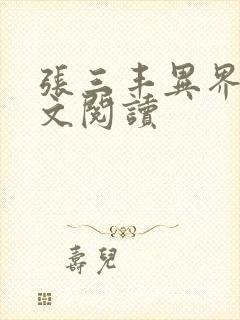 張三丰異界
文閱讀
壽兒